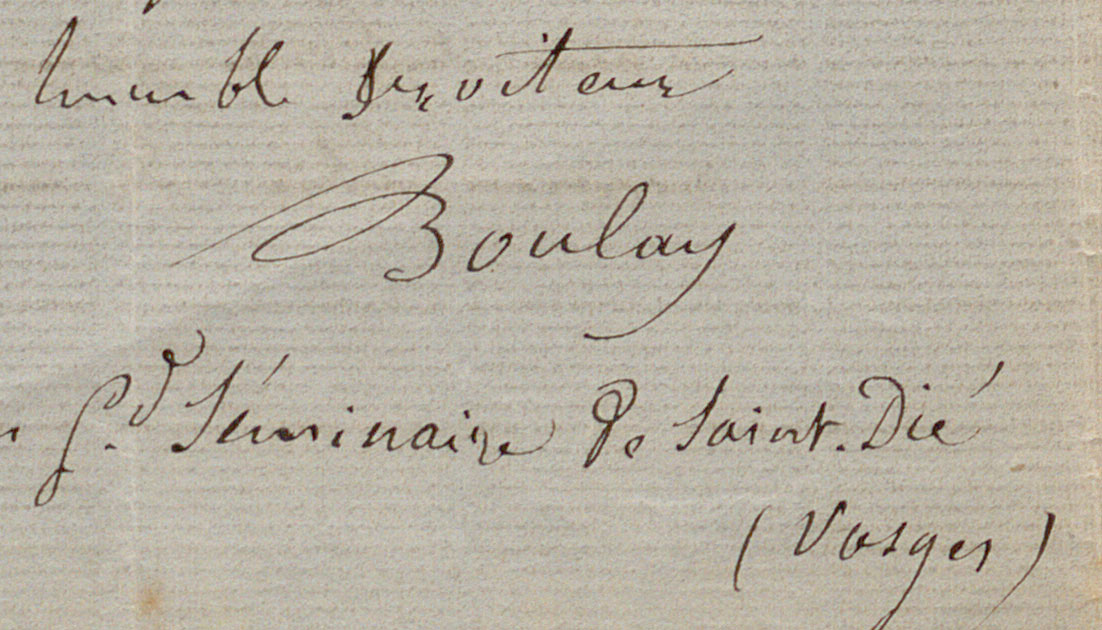 humble Serviteur
Boulay
G.d Séminaire de Saint-Dié
(Vosges)